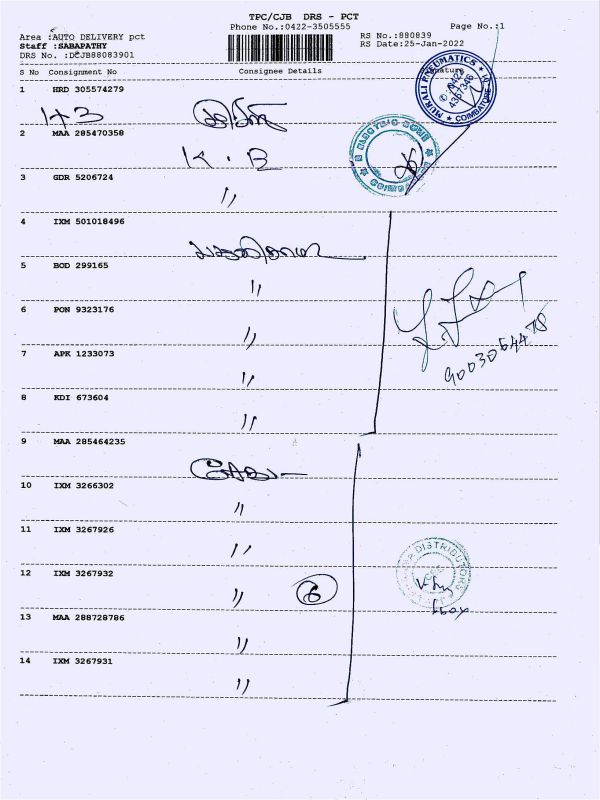 TPC/CJB DRS - PCT
Phone No.:0422-3505555
Page No.:1
Area :AUTO DELIVERY pct
RS No.:880839
Staff :SABAPATHY
RS Date:25-Jan-2022
DRS No. :DCJB88083901
S No Consignment No Consignee Details Signature
MURALI PNEUMATICS
0422
4367346
COIMBATORE
1 HRD 305574279
2 MAA 285470358
K. B
3 GDR 5206724
"
4 IXM 501018496
5 BOD 299165
"
6 PON 9323176
"
7 APK 1233073
"
8 KDI 673604
"
9 MAA 285464235
10 IXM 3266302
"
11 IXM 3267926
"
12 IXM 3267932
" 6
DISTRIBUTORS
13 MAA 288728786
"
14 IXM 3267931
"